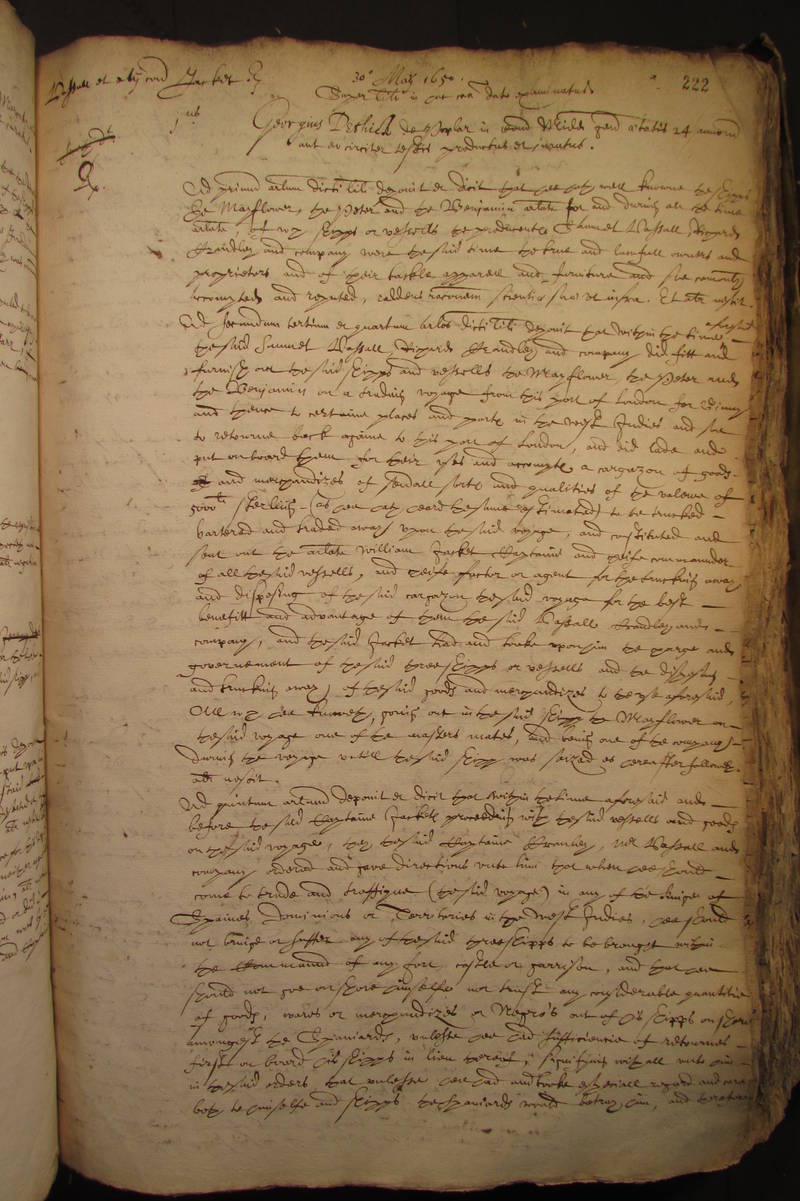 30º May 1650.
222
Vassall et al contra Jacket
Super libello in ea causa dato examinatus
Georgius Deshill de Poplar in com Midd gen ætatis 24 annorum
aut eo circiter testis productus et juratus.
Ad primum arlum dicti lili deponit et dicit that hee hath well knowne the shipps
the Mayflower, the Peter and the Benjamin arlate for and during all the time
arlate of wch shipps or vessells the producents Samuel Vassall, Richard
Crandley and company were the said time the true and lawfull owners and
proprietors and of their tackle apparell and furniture and soe comonly
accompted and reputed, reddens rationem scientiæ suæ ut infra. Et alr nescit.
Ad secundum tertium et quartum arlos dicti lili deponit that within the time aforesaid
the said Samuel Vassall, Richard Crandley and company did fitt and
furnish out the said shipps and vessells the Mayflower, the Peter and
the Benjamin on a trading voyage from this port of London for Guiney
and thence to certaine places and ports in the West Indies and soe
to returne back againe to this port of London, and did lade and
put on board them for their use and accompte a cargazon of goods
and merchandizes of severall sorts and qualities of the valewe of
5000li sterling (as hee hath heard the same estimated) to be trucked
bartered and traded away upon the said voyage, and constituted and
sent out the arlate William Jacket Captaine and cheife commaunder
of all the said vessells, and cheife factor or agent for the trucking away
and disposing of the said cargazon the said voyage for the best
benefitt and advantage of them the said Vassall Crandley and
company, and the said Jacket had and tooke upon him the charge and
governement of the said three shipps or vessells and the disposing
and trucking away of the said goods and merchandizes to the use aforesaid,
All wch hee knoweth, going out in the said shipp the Mayflower on
the said voyage one of the masters mates, and being one of the company
during the voyage untill the said shipp was seized as hereafter followeth.
alr nescit.
Ad quintum arlum deponit et dicit that within the time aforesaid and
before the said Captaine Jackets proceeding with the said vessells and goods
on the said voyage, they the said Captaine Crandley, Mr Vassall and
company ordered and gave directions unto him that when hee should
come to trade and traffique (the said voyage) in any of the kinge of
Spaines Dominions or Territories in the West Indies, hee should
not bringe or suffer any of the said three shipps to be brought within
the Command of any fort, castle or garrison, and that hee
should not goe on shore himselfe nor trust any considerable quantitie
of goods, wares or merchandizes or Negro's out of his shipps on shore
amongest the Spaniards, unlesse hee had sufficiencie of returnes
first on board his shipps in lieu thereof, signifying withall unto him
in the said orders that unlesse hee had and tooke especiall regard and care
both to himselfe and shipps the Spaniards would betray him, and